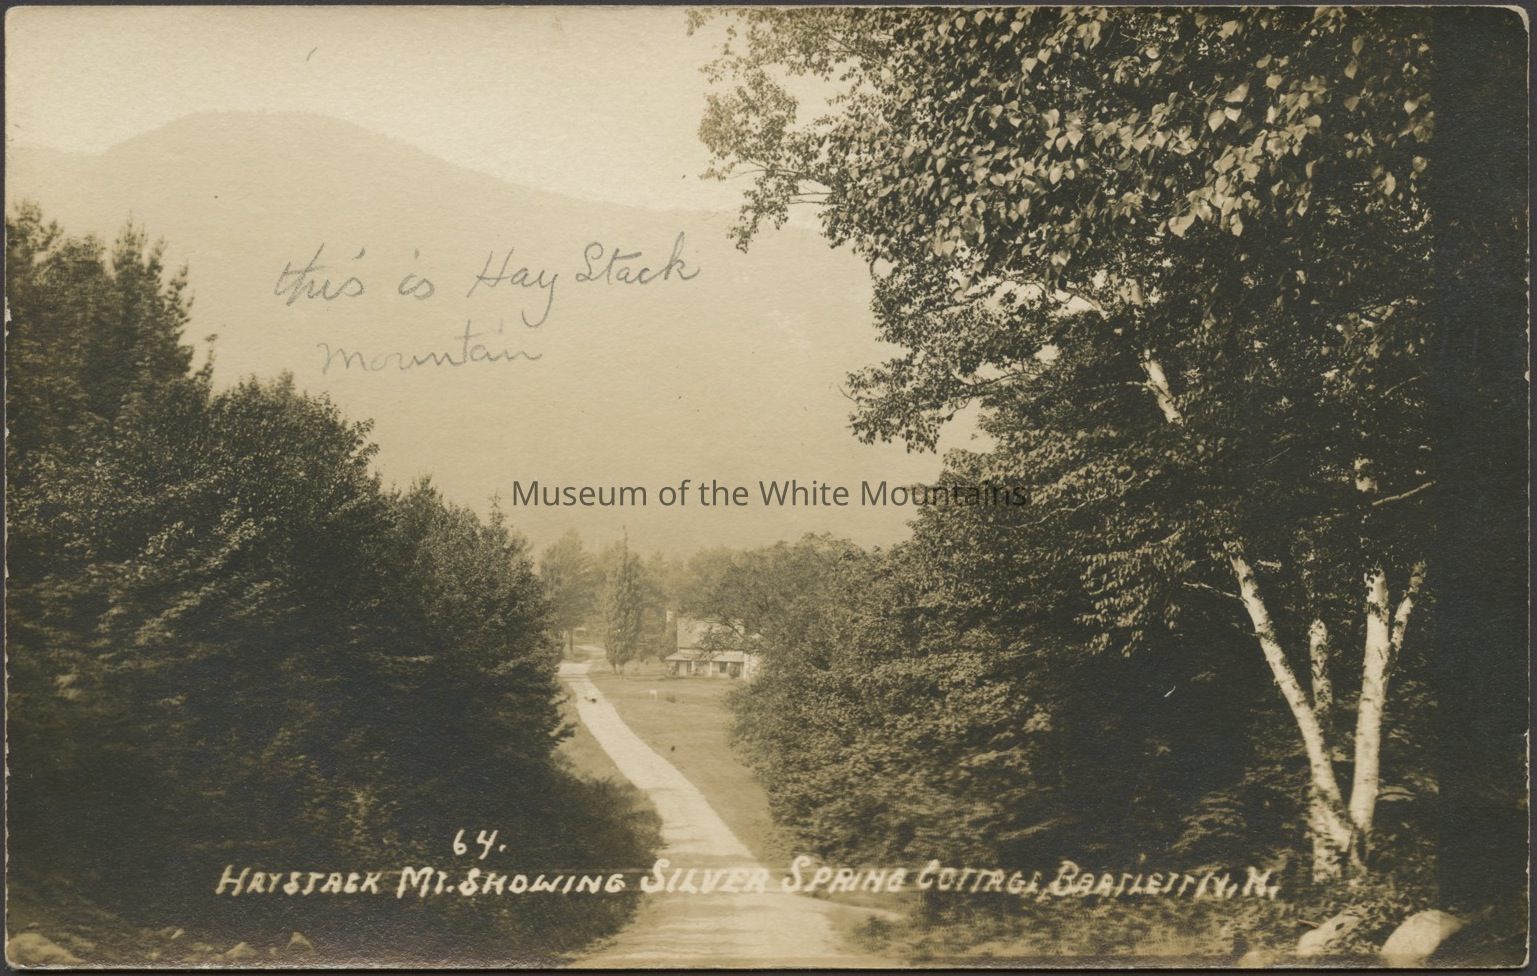 this is Hay Stack
mountain
Museum of the White Mountains
64.
HAYSTACK MT. SHOWING SILVER SPRING COTTAGE, BARTLETT, N.H.